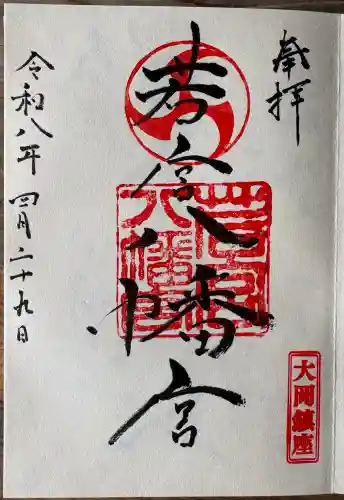 奉拝
若宮八幡宮
若宮八幡宮
大岡鎮座
令和八年四月二十九日